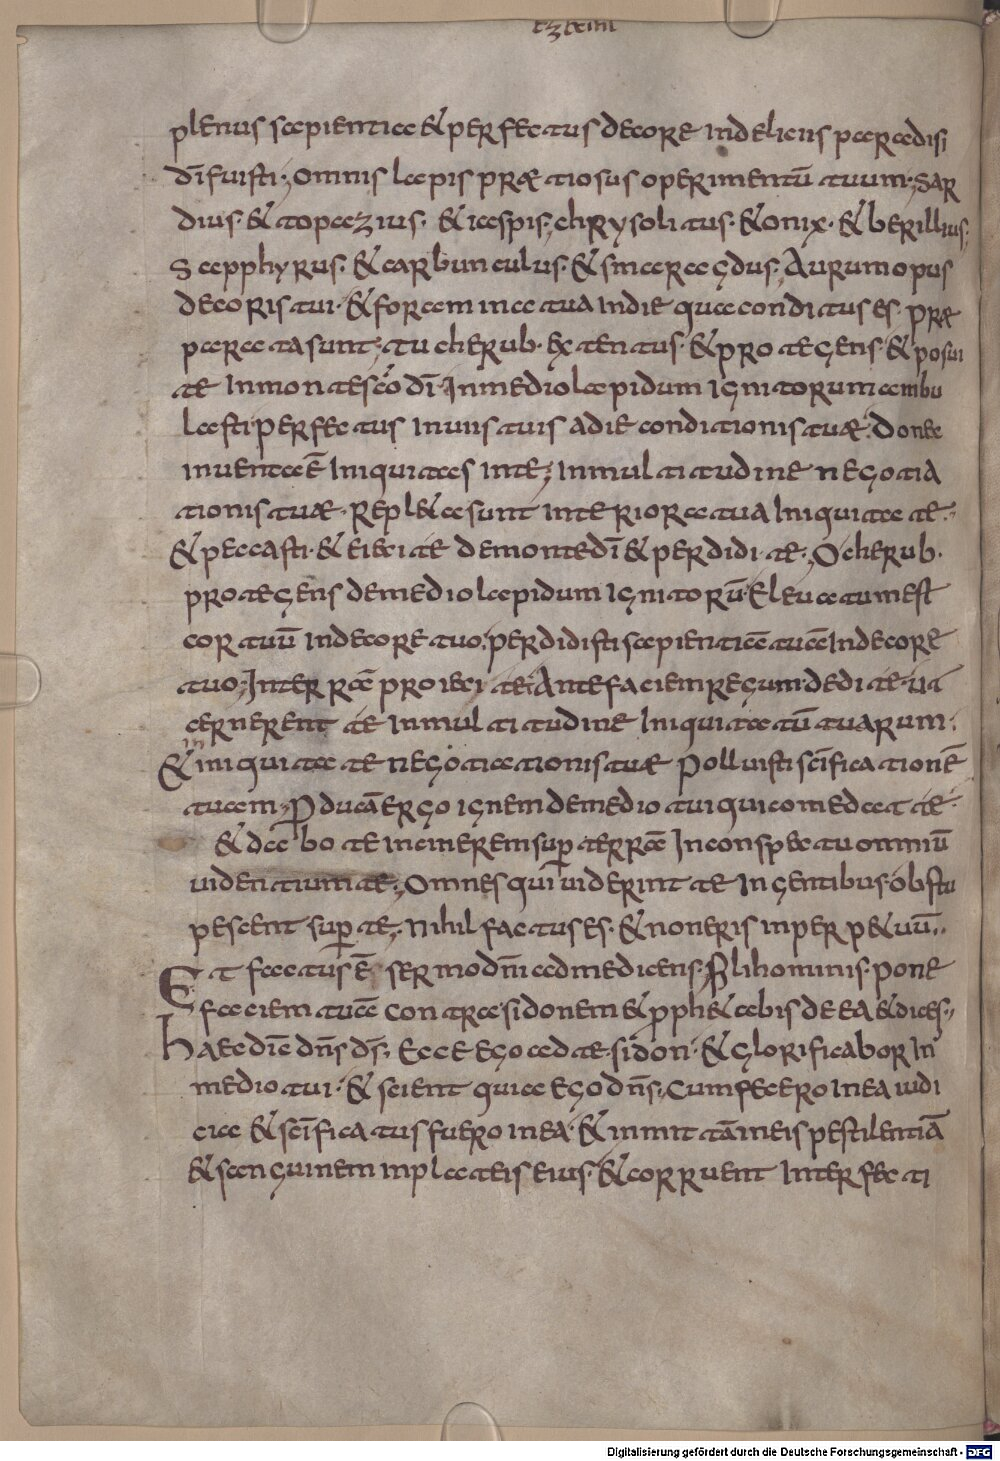 plenus sapientia & perfectus decore Indeliciis paradisi
dīfuisti; omnis lapis præ tiosus operimentū tuum; Sar
dius· & topazius· & iaspis; chrysolitus· & onix· & berillius;
Sapphyrus· & carbunculus· & smaragdus; Aurum opus
decoris tui· & foramina tua Indie qua conditus es· præ
parata sunt; tu cherub· extentus· & protegens· & posui
te Inmonte scō dī· Inmedio lapidum ignitorum ambu
lasti perfectus Inuiis tuis adie conditionis tuæ· Donec
inuenta ē Iniquitas Inte; Inmultitudine negotia
tionis tuæ· Repl&a sunt Interiora tua Iniquitate·
& peccasti· & eieci te demonte dī & perdidi te; O cherub·
protegens demedio lapidum ignitorū· Eleuatum est
cor tuū Indecore tuo; perdidisti sapientiā tuā Indecore
tuo; Inter rā proieci te· Ante faciem regum· dedi te· ut
cernerent te Inmultitudine Iniquitatū tuarum·
& iniquitate negotiationis tuæ polluisti scīficationē
tuam; Producā ergo ignem demedio tui qui comedat te·
& dabo te incinerem sup terrā Inconspectu omniū
uidentium te; Omnes qui uiderint te In gentibus· obstu
pescent sup te; Nihil factus es· & non eris inperp&uū;
Et factus ē sermo dn̄i ad me dicens; Fili hominis· pone
faciem tuā contra sidonem & proph&abis de ea & dices;
haec diē dn̄s ds̄; Ecce ego ad te· sidon· & glorificabor In
medio tui· & scient quia ego dn̄s; Cum fecero in ea iudi
cia & scīficatus fuero in ea· & inmittā in eis pestilentiā
& sanguinem inplateis eius· & corruent Interfecti
Digitalisierung gefördert durch die Deutsche Forschungsgemeinschaft - DFG